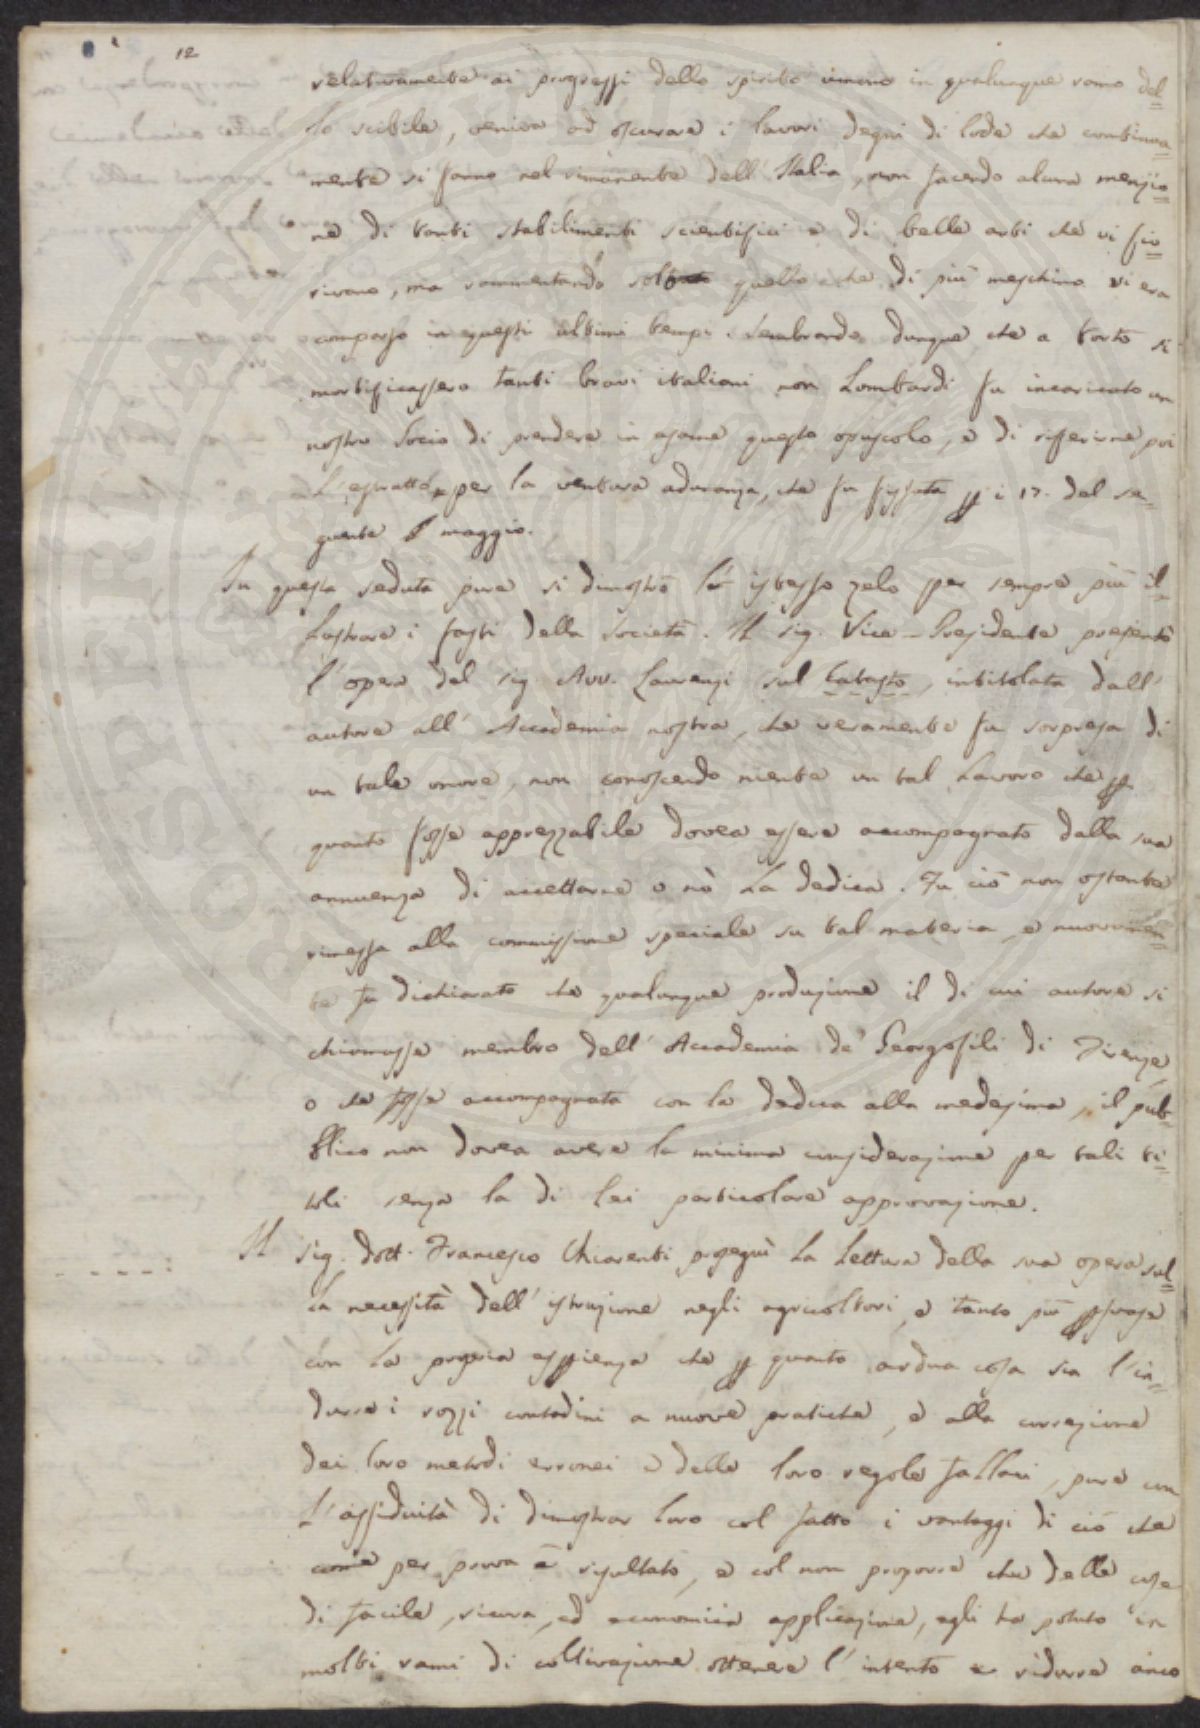 12
relativamente ai progressi dello spirito umano in qualunque ramo del=
lo scibile, veniva ad oscurare i lavori degni di lode che continua=
mente si fanno nel rimanente dell' Italia, non facendo alcuna menzio=
ne di tanti stabilimenti scientifici e di belle arti che vi fio=
rivano, ma rammentando soltanto quello che di più meschino vi era
comparso in questi ultimi tempi. Sembrando dunque che a torto si
mortificassero tanti bravi italiani non Lombardi fu incaricato un
nostro Socio di prendere in esame questo opuscolo, e di riferirne poi
l'estratto per la ventura adunanza, che fu fissata p i 17. del se=
guente maggio.
In questa seduta pure si dimostrò lo istesso zelo per sempre più il=
lustrare i fasti della Società. Il sig. Vice-Presidente presentò
l'opera del sig. Avv. Laurenzi sul Catasto, intitolata dall'
autore all' Accademia nostra, che veramente fu sorpresa di
un tale onore, non conoscendo niente un tal lavoro che p
quanto fosse apprezzabile dovea essere accompagnato dalla sua
annuenza di accettarne o nò la dedica. Fu ciò non ostante
rimessa alla commissione speciale su tal materia, e nuovamen=
te fu dichiarato che qualunque produzione il di cui autore si
chiamasse membro dell' Accademia de' Georgofili di Firenze,
o se fosse accompagnata con la dedica alla medesima, il pub=
blico non dovea avere la minima considerazione per tali ti=
toli senza la di lei particolare approvazione.
Il sig. dott. Francesco Chiarenti proseguì la lettura della sua opera sul=
la necessità dell' istruzione negli agricoltori, e tanto più psuase
con la propria espienza che p quanto ardua cosa sia l'in=
durre i rozzi contadini a nuove pratiche, e alla correzione
dei loro metodi erronei e delle loro regole fallaci, pure con
l'assiduità di dimostrar loro col fatto i vantaggi di ciò che
come per prova è risultato, e col non proporre che delle cose
di facile, sicura, ed economica applicazione, egli ha potuto in
molti rami di coltivazione ottenere l'intento e ridurre anco